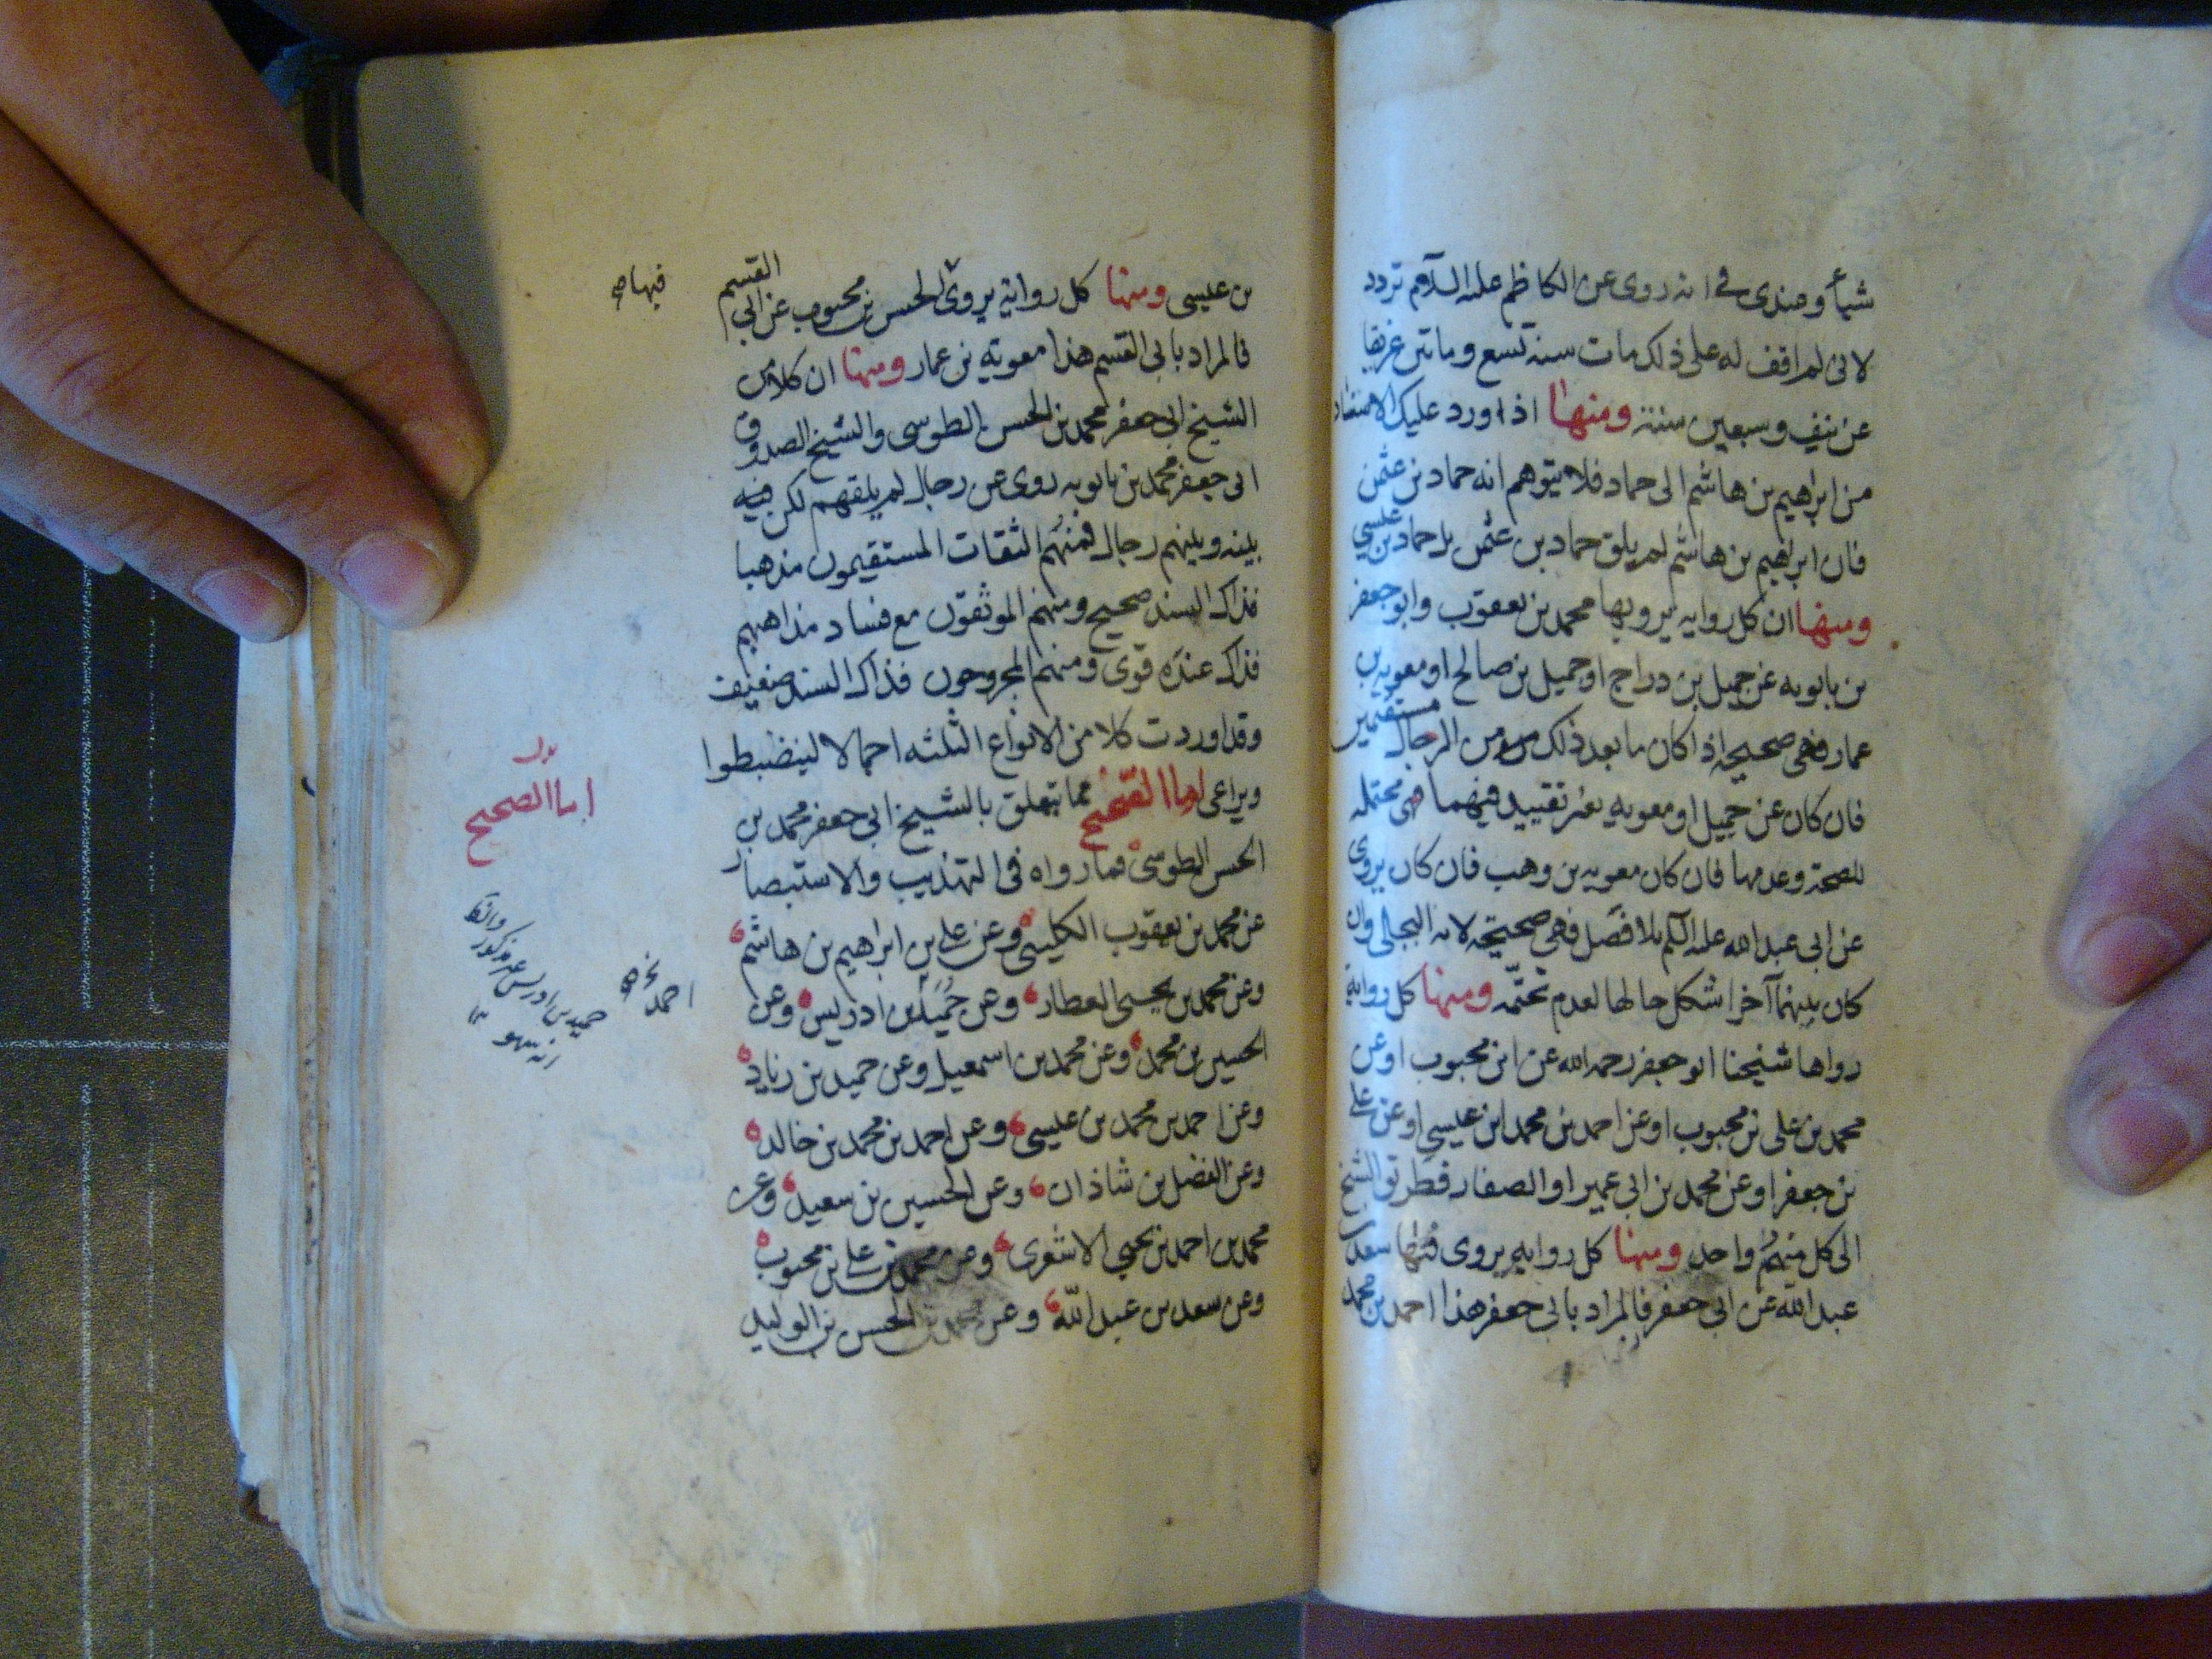 شيأ وعندى فى انه روى عن الكاظم عليه السلام تردد
لانى لم اقف له على ذلك مات سنة تسع وماتين غريقا
عن نيف وسبعين سنة ومنها اذا ورد عليك الاسناد
من ابراهيم بن هاشم الى حماد فلا تتوهم انه حماد بن عثمن
فان ابراهيم بن هاشم لم يلق حماد بن عثمن بل حماد بن عيسى
ومنها ان كل روايه يرويها محمد بن يعقوب وابو جعفر
بن بابويه عن جميل بن دراج او جميل بن صالح او معويه بن
عمار فهى صحيحه اذا كان ما بعد ذلك من الرجال مستقيمين
فان كان عن جميل او معويه بغير تقييد فيهما فهى محتمله
للصحة وعدمها فان كان معويه بن وهب فان كان يروى
عن ابى عبد الله عليه السلم بلا فصل فهى صحيحه لانه البجلى وان
كان بينهما آخر اشكل حالها لعدم تحتمه ومنها كل رواية
رواها شيخنا ابو جعفر رحمه الله عن ابن محبوب او عن
محمد بن على بن محبوب او عن احمد بن محمد ابن عيسى او عن على
بن جعفر او عن محمد بن ابى عمير او الصفار فطريق الشيخ
الى كل منهم واحد ومنها كل روايه يروى فيها سعد بن
عبد الله عن ابى جعفر فالمراد بابى جعفر هذا احمد بن محمد
بن عيسى ومنها كل رواية يروى الحسن بن محبوب عن ابى القسم
فيها صح
فالمراد بابى القسم هذا معوية بن عمار ومنها ان كلا من
الشيخ ابى جعفر محمد بن الحسن الطوسى والشيخ الصدوق
ابى جعفر محمد بن بابويه روى عن رجال لم يلقهم لكن
بينه وبينهم رجال فمنهم الثقات المستقيمون مذهبا
فذاك السند صحيح ومنهم الموثقون مع فساد مذاهبهم
فذاك عنده قوى ومنهم المجروحون فذاك السند ضعيف
وقد اوردت كلا من الانواع الثلثه اجمالا لينضبطوا
ويراعى اما الصحيح مما يتعلق بالشيخ ابى جعفر محمد بن
بدل
اما الصحيح
الحسن الطوسى فما رواه فى التهذيب والاستبصار
عن محمد بن يعقوب الكلينى وعن على بن ابراهيم بن هاشم
وعن محمد بن يحيى العطار وعن حميد بن ادريس وعن
احمد
حميد بن ادريس غير مذكور
انه سهو
الحسين بن محمد وعن محمد بن اسمعيل وعن حميد بن زياد
وعن احمد بن محمد بن عيسى وعن احمد بن محمد بن خالد
وعن الفضل بن شاذان وعن الحسين بن سعيد وعن
محمد بن احمد بن يحيى الاشعرى وعن محمد بن على بن محبوب
وعن سعد بن عبد الله وعن محمد بن الحسن بن الوليد